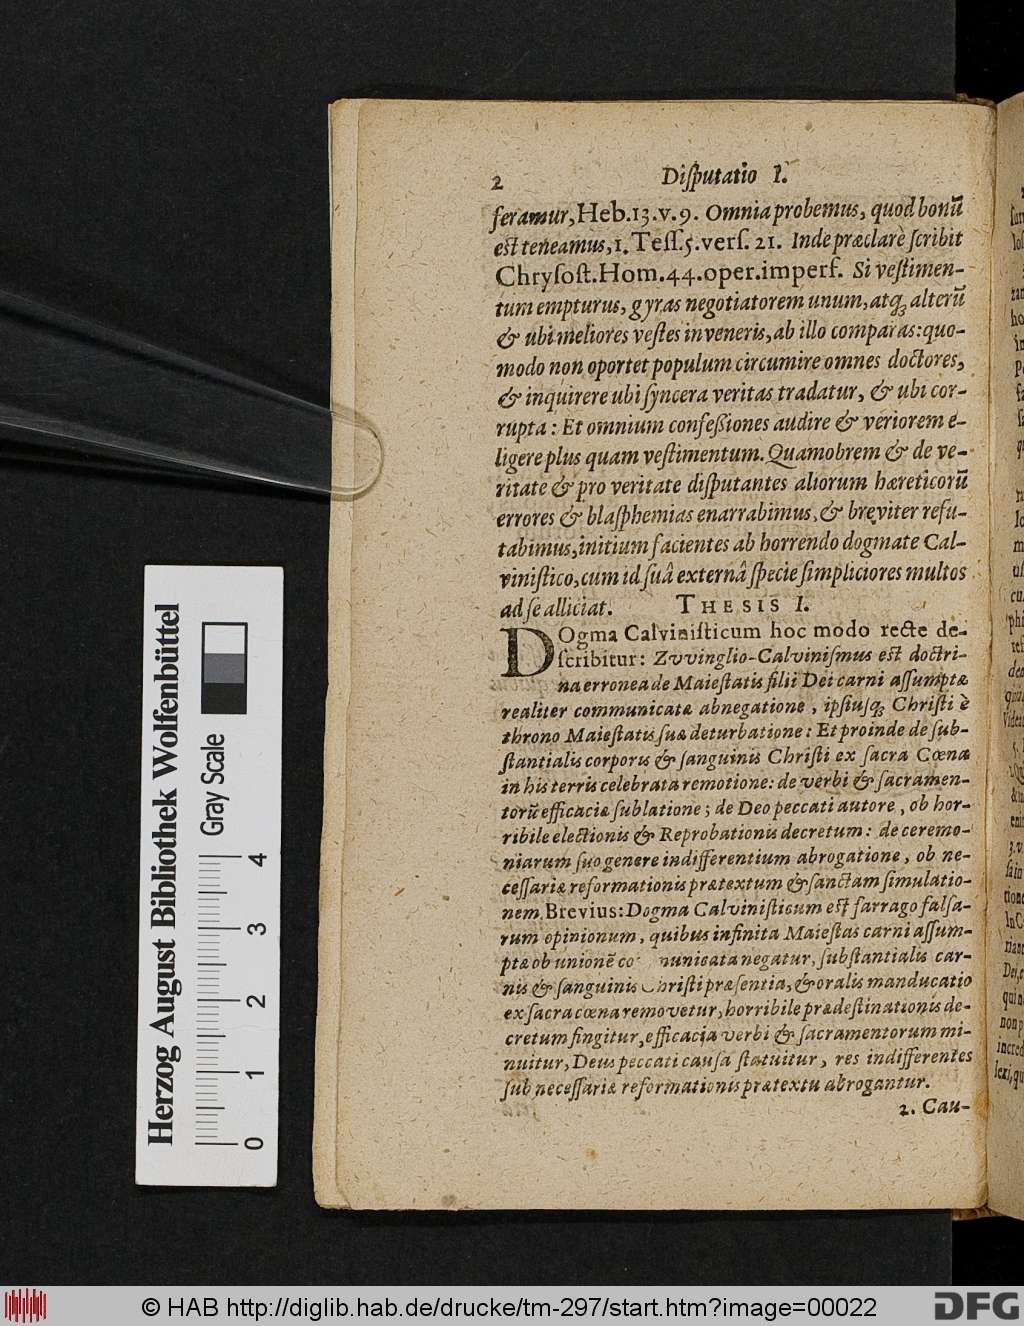 2 Diſputatio I.
feramur, Heb.13.v.9. Omnia probemus, quod bonũ
est teneamus, 1. Teſſ.5.verſ. 21. Inde præclarè ſcribit
Chryſoſt.Hom.44.oper.imperf. Si veſtimen-
tum empturus, gyras negotiatorem unum, atq; alterũ
& ubi meliores veſtes inveneris, ab illo comparas: quo-
modo non oportet populum circumire omnes doctores,
& inquirere ubi ſyncera veritas tradatur, & ubi cor-
rupta: Et omnium confeßiones audire & veriorem e-
ligere plus quam veſtimentum. Quamobrem & de ve-
ritate & pro veritate diſputantes aliorum hæreticorũ
errores & blaſphemias enarrabimus, & breviter refu-
tabimus, initium facientes ab horrendo dogmate Cal-
viniſtico, cum id ſuâ externâ ſpecie ſimpliciores multos
ad ſe alliciat. THESIS I.
DOgma Calviniſticum hoc modo recte de-
ſcribitur: Zvvinglio-Calviniſmus est doctri-
na erronea de Maieſtatis filii Dei carni aſſumptæ
realiter communicatæ abnegatione, ipſiusq; Chriſti è
throno Maieſtatis ſuæ deturbatione: Et proinde de ſub-
ſtantialis corporis & ſanguinis Chriſti ex ſacra Cœna
in his terris celebrata remotione: de verbi & ſacramen-
torũ efficaciæ ſublatione; de Deo peccati autore, ob hor-
ribile electionis & Reprobationis decretum: de ceremo-
niarum ſuo genere indifferentium abrogatione, ob ne-
ceſſariæ reformationis prætextum & ſanctam ſimulatio-
nem. Brevius: Dogma Calviniſticum est farrago falſa-
rum opinionum, quibus infinita Maieſtas carni aſſum-
ptæ ob unionẽ co nunicata negatur, ſubſtantialis car-
nis & ſanguinis Chriſti præſentia, & oralis manducatio
ex ſacra cœna removetur, horribile prædeſtinationis de-
cretum fingitur, efficacia verbi & ſacramentorum mi-
nuitur, Deus peccati cauſa ſtatuitur, res indifferentes
ſub neceſſariæ reformationis prætextu abrogantur.
2. Cau-
Herzog August Bibliothek Wolfenbüttel
Gray Scale
0 1 2 3 4
© HAB http://diglib.hab.de/drucke/tm-297/start.htm?image=00022
DFG